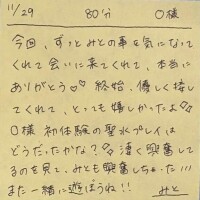 11/29 80分 O様
今回、ずっとみとの事を気になって
くれて会いに来てくれて、本当に
ありがとう♡♡ 終始、優しく接し
てくれて、とっても嬉しかったよ♢♢
O様 初体験の聖水プレイは
どうだったかな？♢♢ 凄く興奮して
るのを見て、みとも興奮しちゃった!!!
また一緒に遊ぼうね!! みと